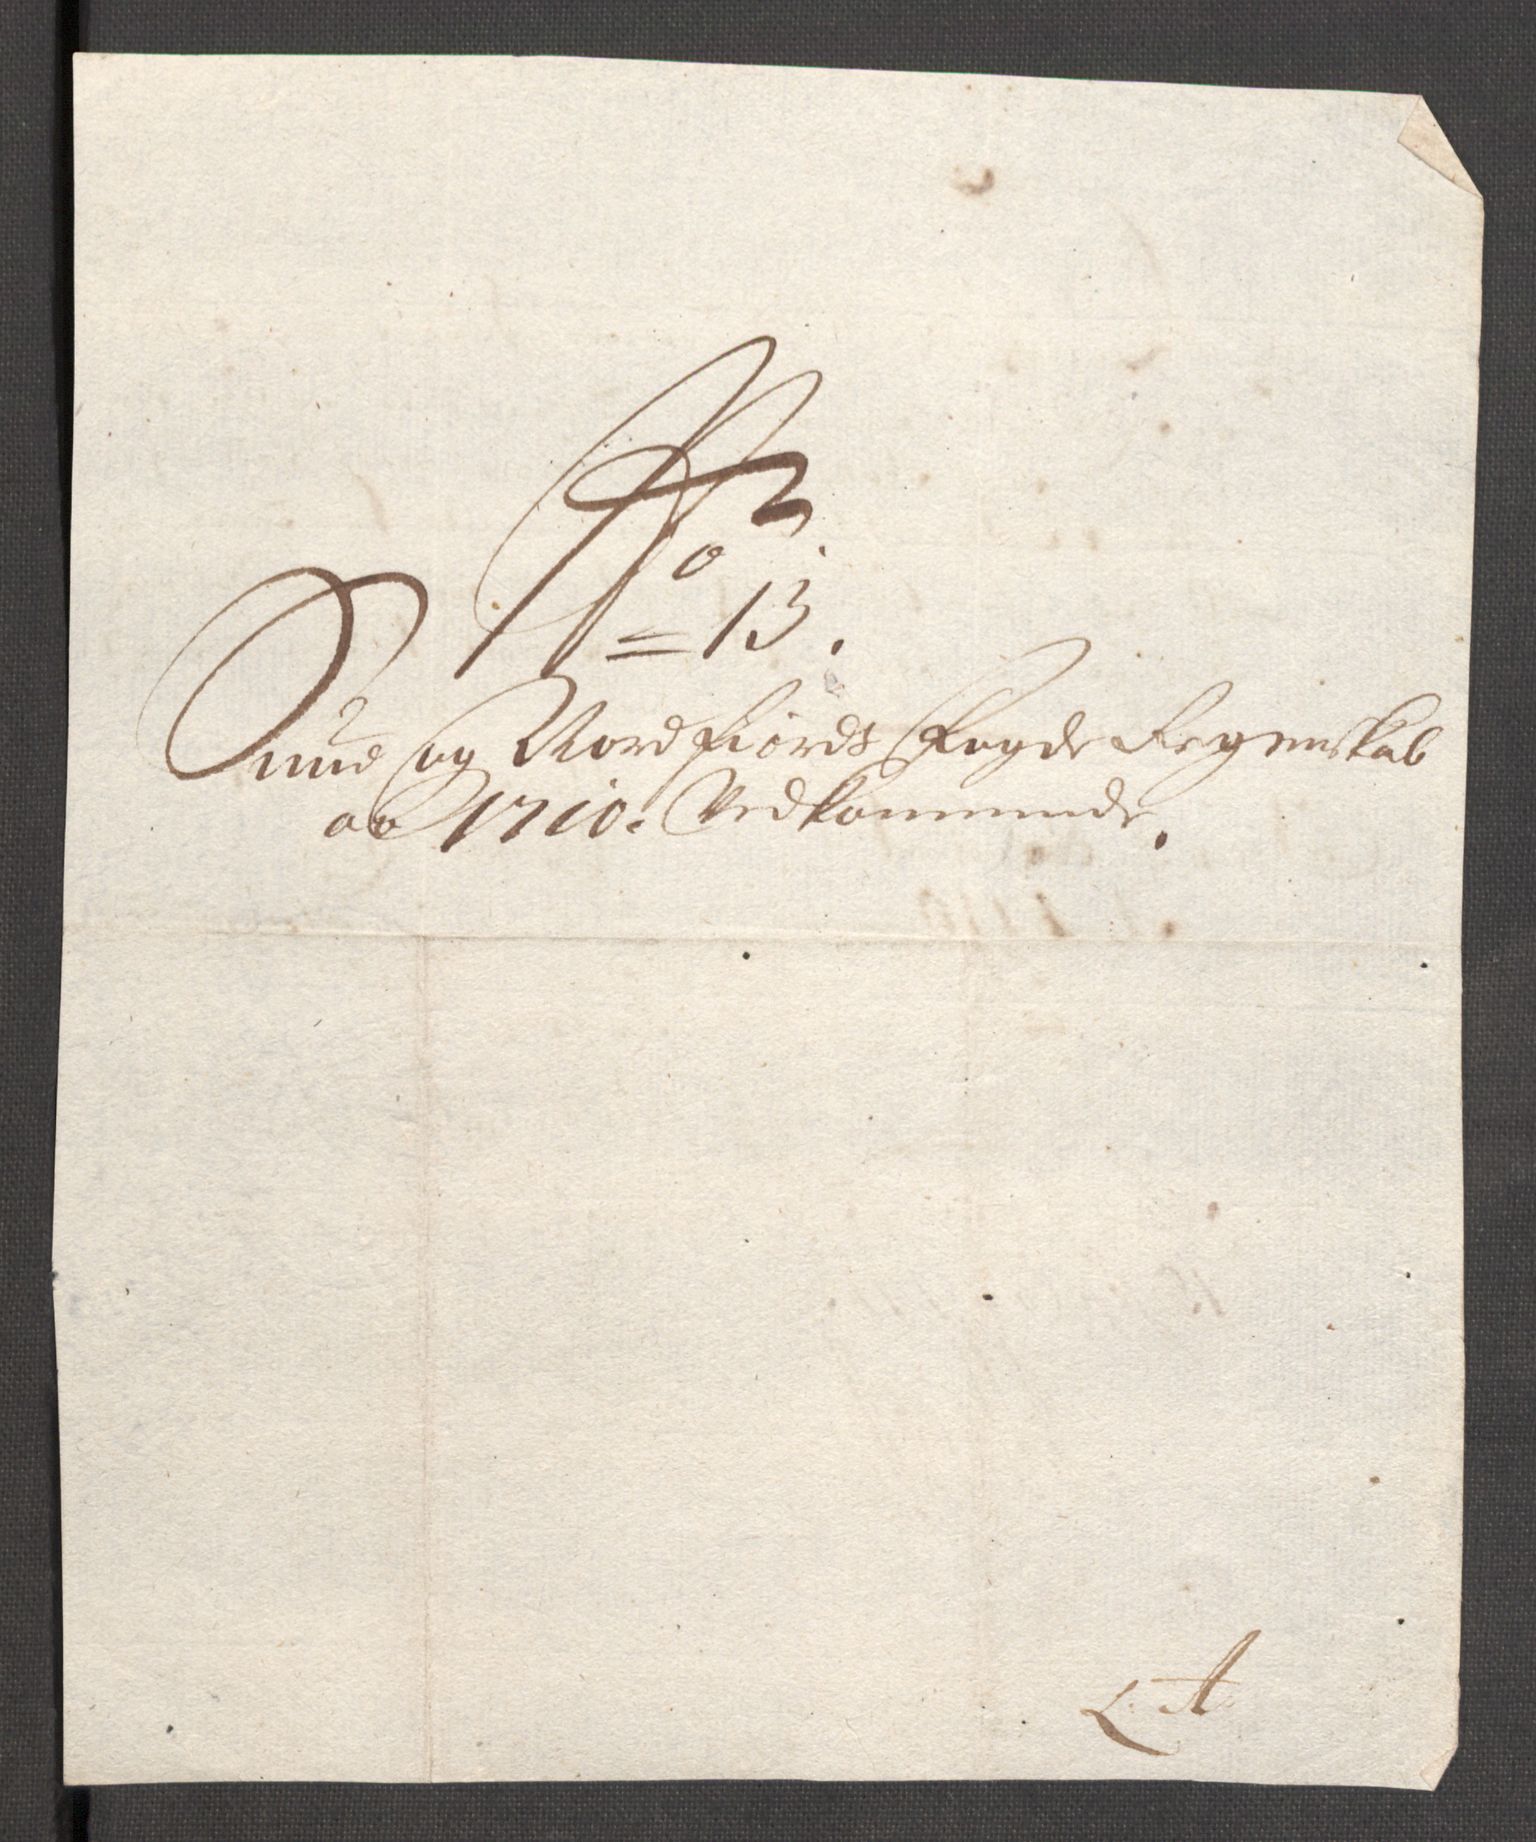 No
13.
Sund og Nordfiords Fogde Regenskab
ao 1710. Vedkommende.
L. A